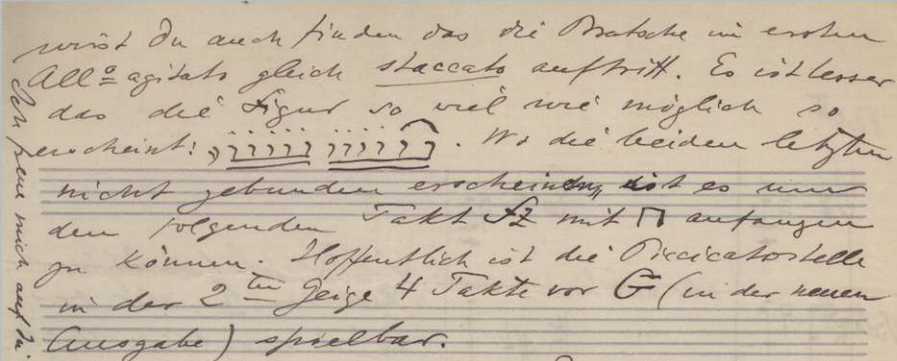 wirst Du auch finden das die Bratsche im ersten
Allo agitato gleich staccato auftritt. Es ist besser
das die Figur so viel wie möglich so
erscheint: . Wo die beiden letzten
nicht gebunden erscheinen, ist es um
den folgenden Takt fz mit ⊓ anfangen
zu können. Hoffentlich ist die Piccicatostelle
in der 2ten Geige 4 Takte vor G (in der neuen
Ausgabe) spielbar.
Ich freue mich auf